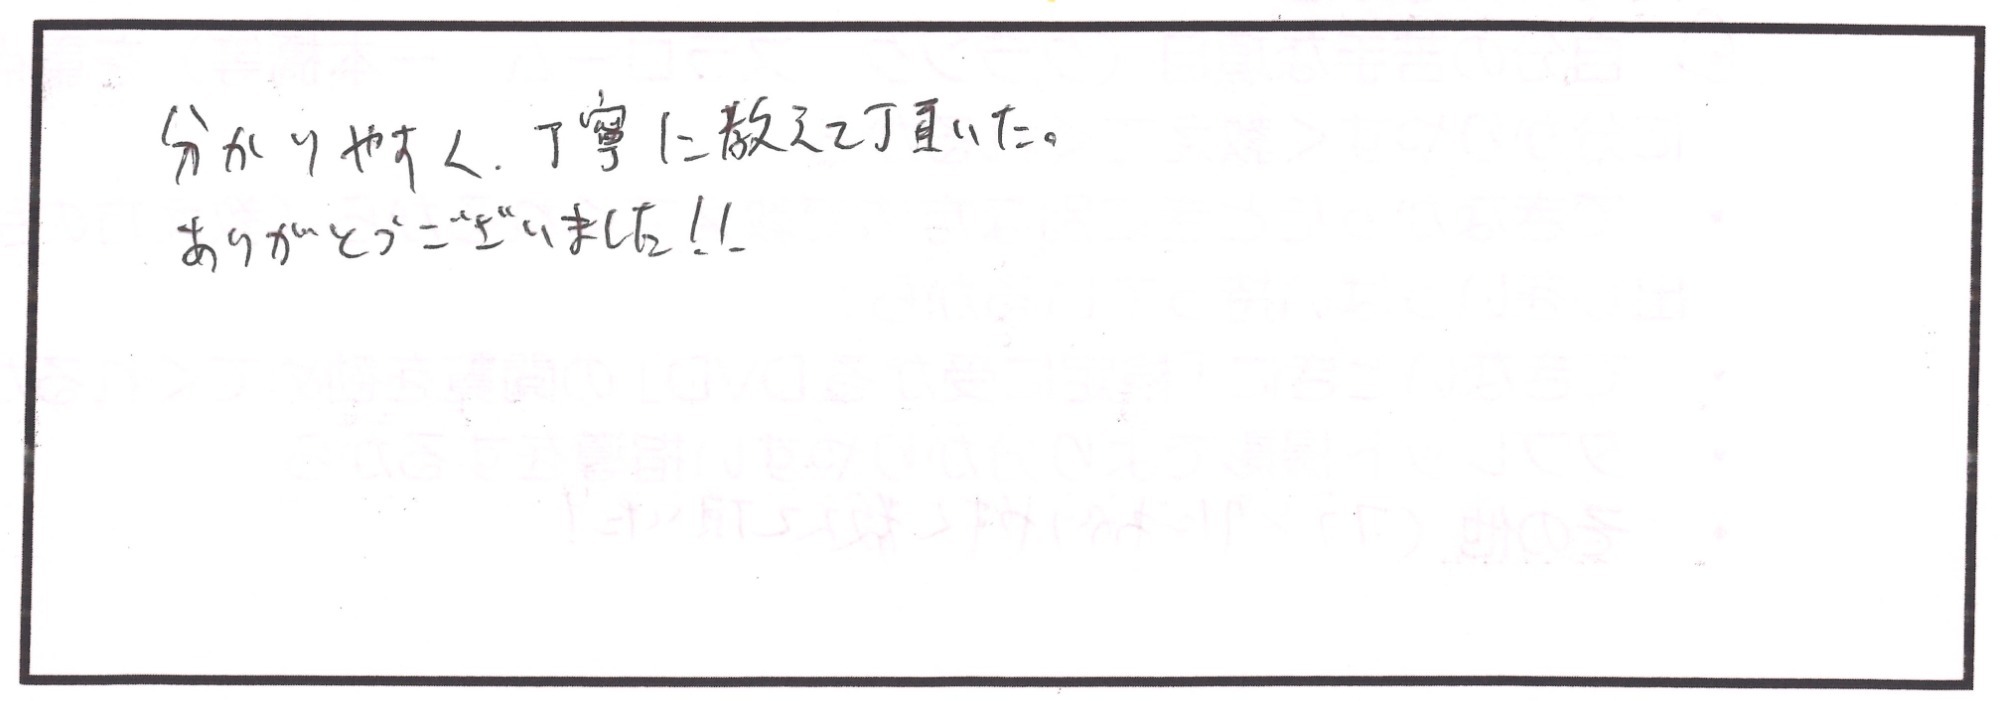 分かりやすく、丁寧に教えて頂いた。
ありがとうございました!!